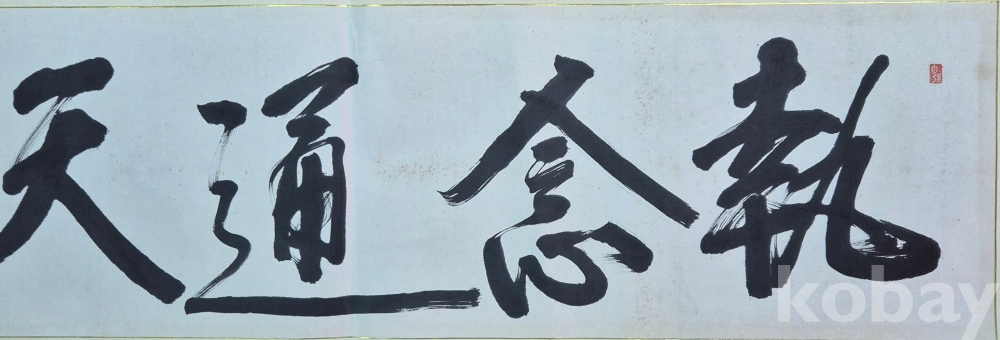 執念通天
kobay